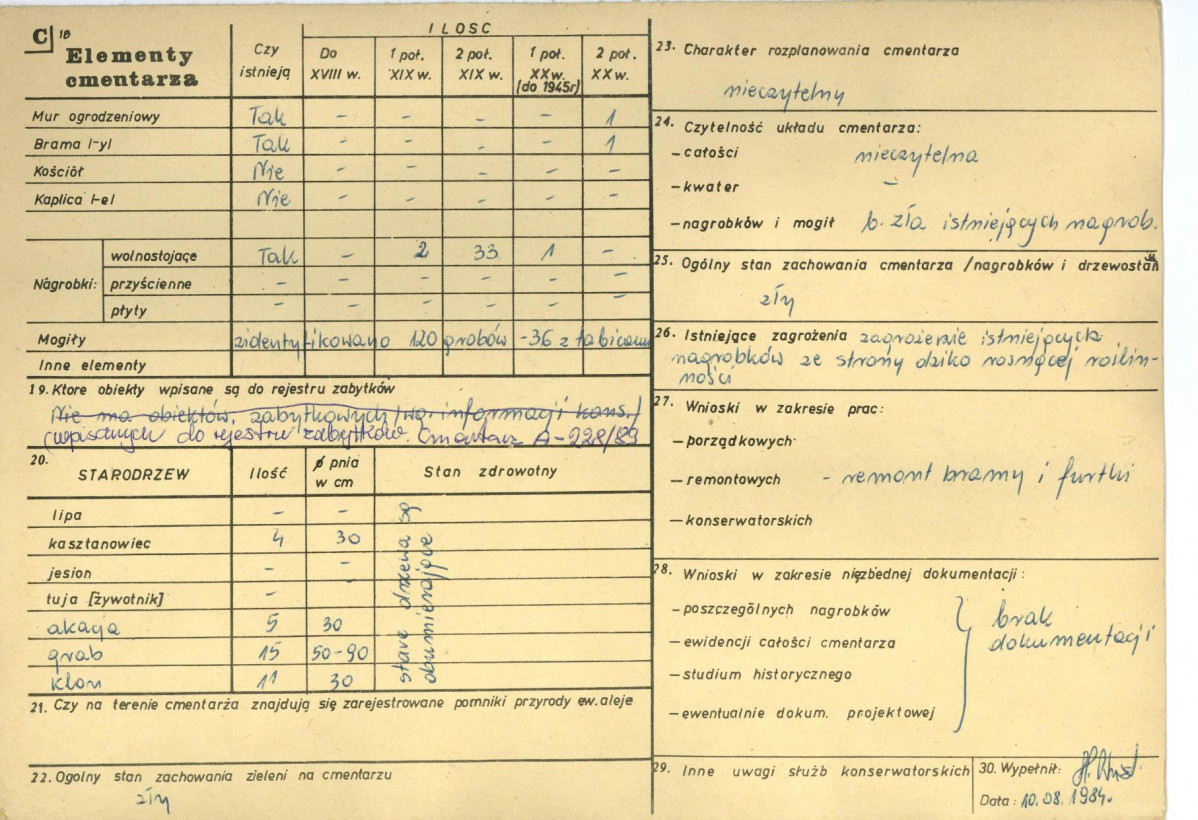 C 18 Elementy cmentarza
Czy istnieją
ILOSC
Do XVIII w.
1 poł. XIX w.
2 poł. XIX w.
1 poł. XX w. (do 1945r)
2 poł. XX w.
Mur ogrodzeniowy Tak - - - - 1
Brama 1-yl Tak - - - - 1
Kościół Nie - - - - -
Kaplica 1-el Nie - - - - -
Nagrobki:
wolnostojące Tak - 2 33 1 -
przyścienne - - - - - -
płyty - - - - - -
Mogiły zidentyfikowano 120 grobów - 36 z tablicami
Inne elementy
19. Ktore obiekty wpisane są do rejestru zabytków
Nie ma obiektów, zabytkowych /wg. informacji kons./
(wpisanych do rejestru zabytków. Cmentarz A-228/89
20. STARODRZEW Ilość ϕ pnia w cm Stan zdrowotny
lipa - -
kasztanowiec 4 30
jesion - -
tuja [żywotnik] - -
akacja 5 30
grab 15 50-90
klon 11 30
stare drzewa są
obumierające
21. Czy na terenie cmentarza znajdują się zarejestrowane pomniki przyrody ew. aleje
22. Ogolny stan zachowania zieleni na cmentarzu
zły
23. Charakter rozplanowania cmentarza
nieczytelny
24. Czytelność układu cmentarza:
- całości nieczytelna
- kwater -
- nagrobków i mogił b. zła istniejących nagrob.
25. Ogólny stan zachowania cmentarza /nagrobków i drzewostan
zły
26. Istniejące zagrożenia zagrożenie istniejących
nagrobków ze strony dziko rosnącej roślin-
ności
27. Wnioski w zakresie prac:
- porządkowych
- remontowych - remont bramy i furtki
- konserwatorskich
28. Wnioski w zakresie niezbednej dokumentacji:
- poszczególnych nagrobków
- ewidencji całości cmentarza
- studium historycznego
- ewentualnie dokum. projektowej
brak
dokumentacji
29. Inne uwagi służb konserwatorskich
30. Wypełnił:
Data: 10.08.1984.